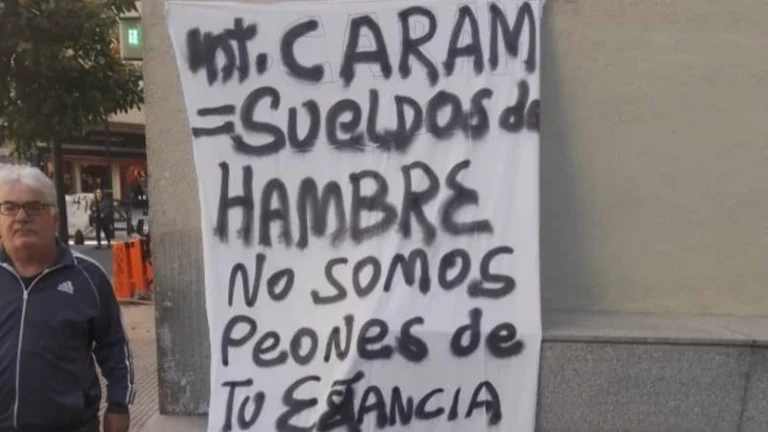 Int. CARAM
= SUELDOS de
HAMBRE
NO SOMOS
PEONES de
TU ESTANCIA